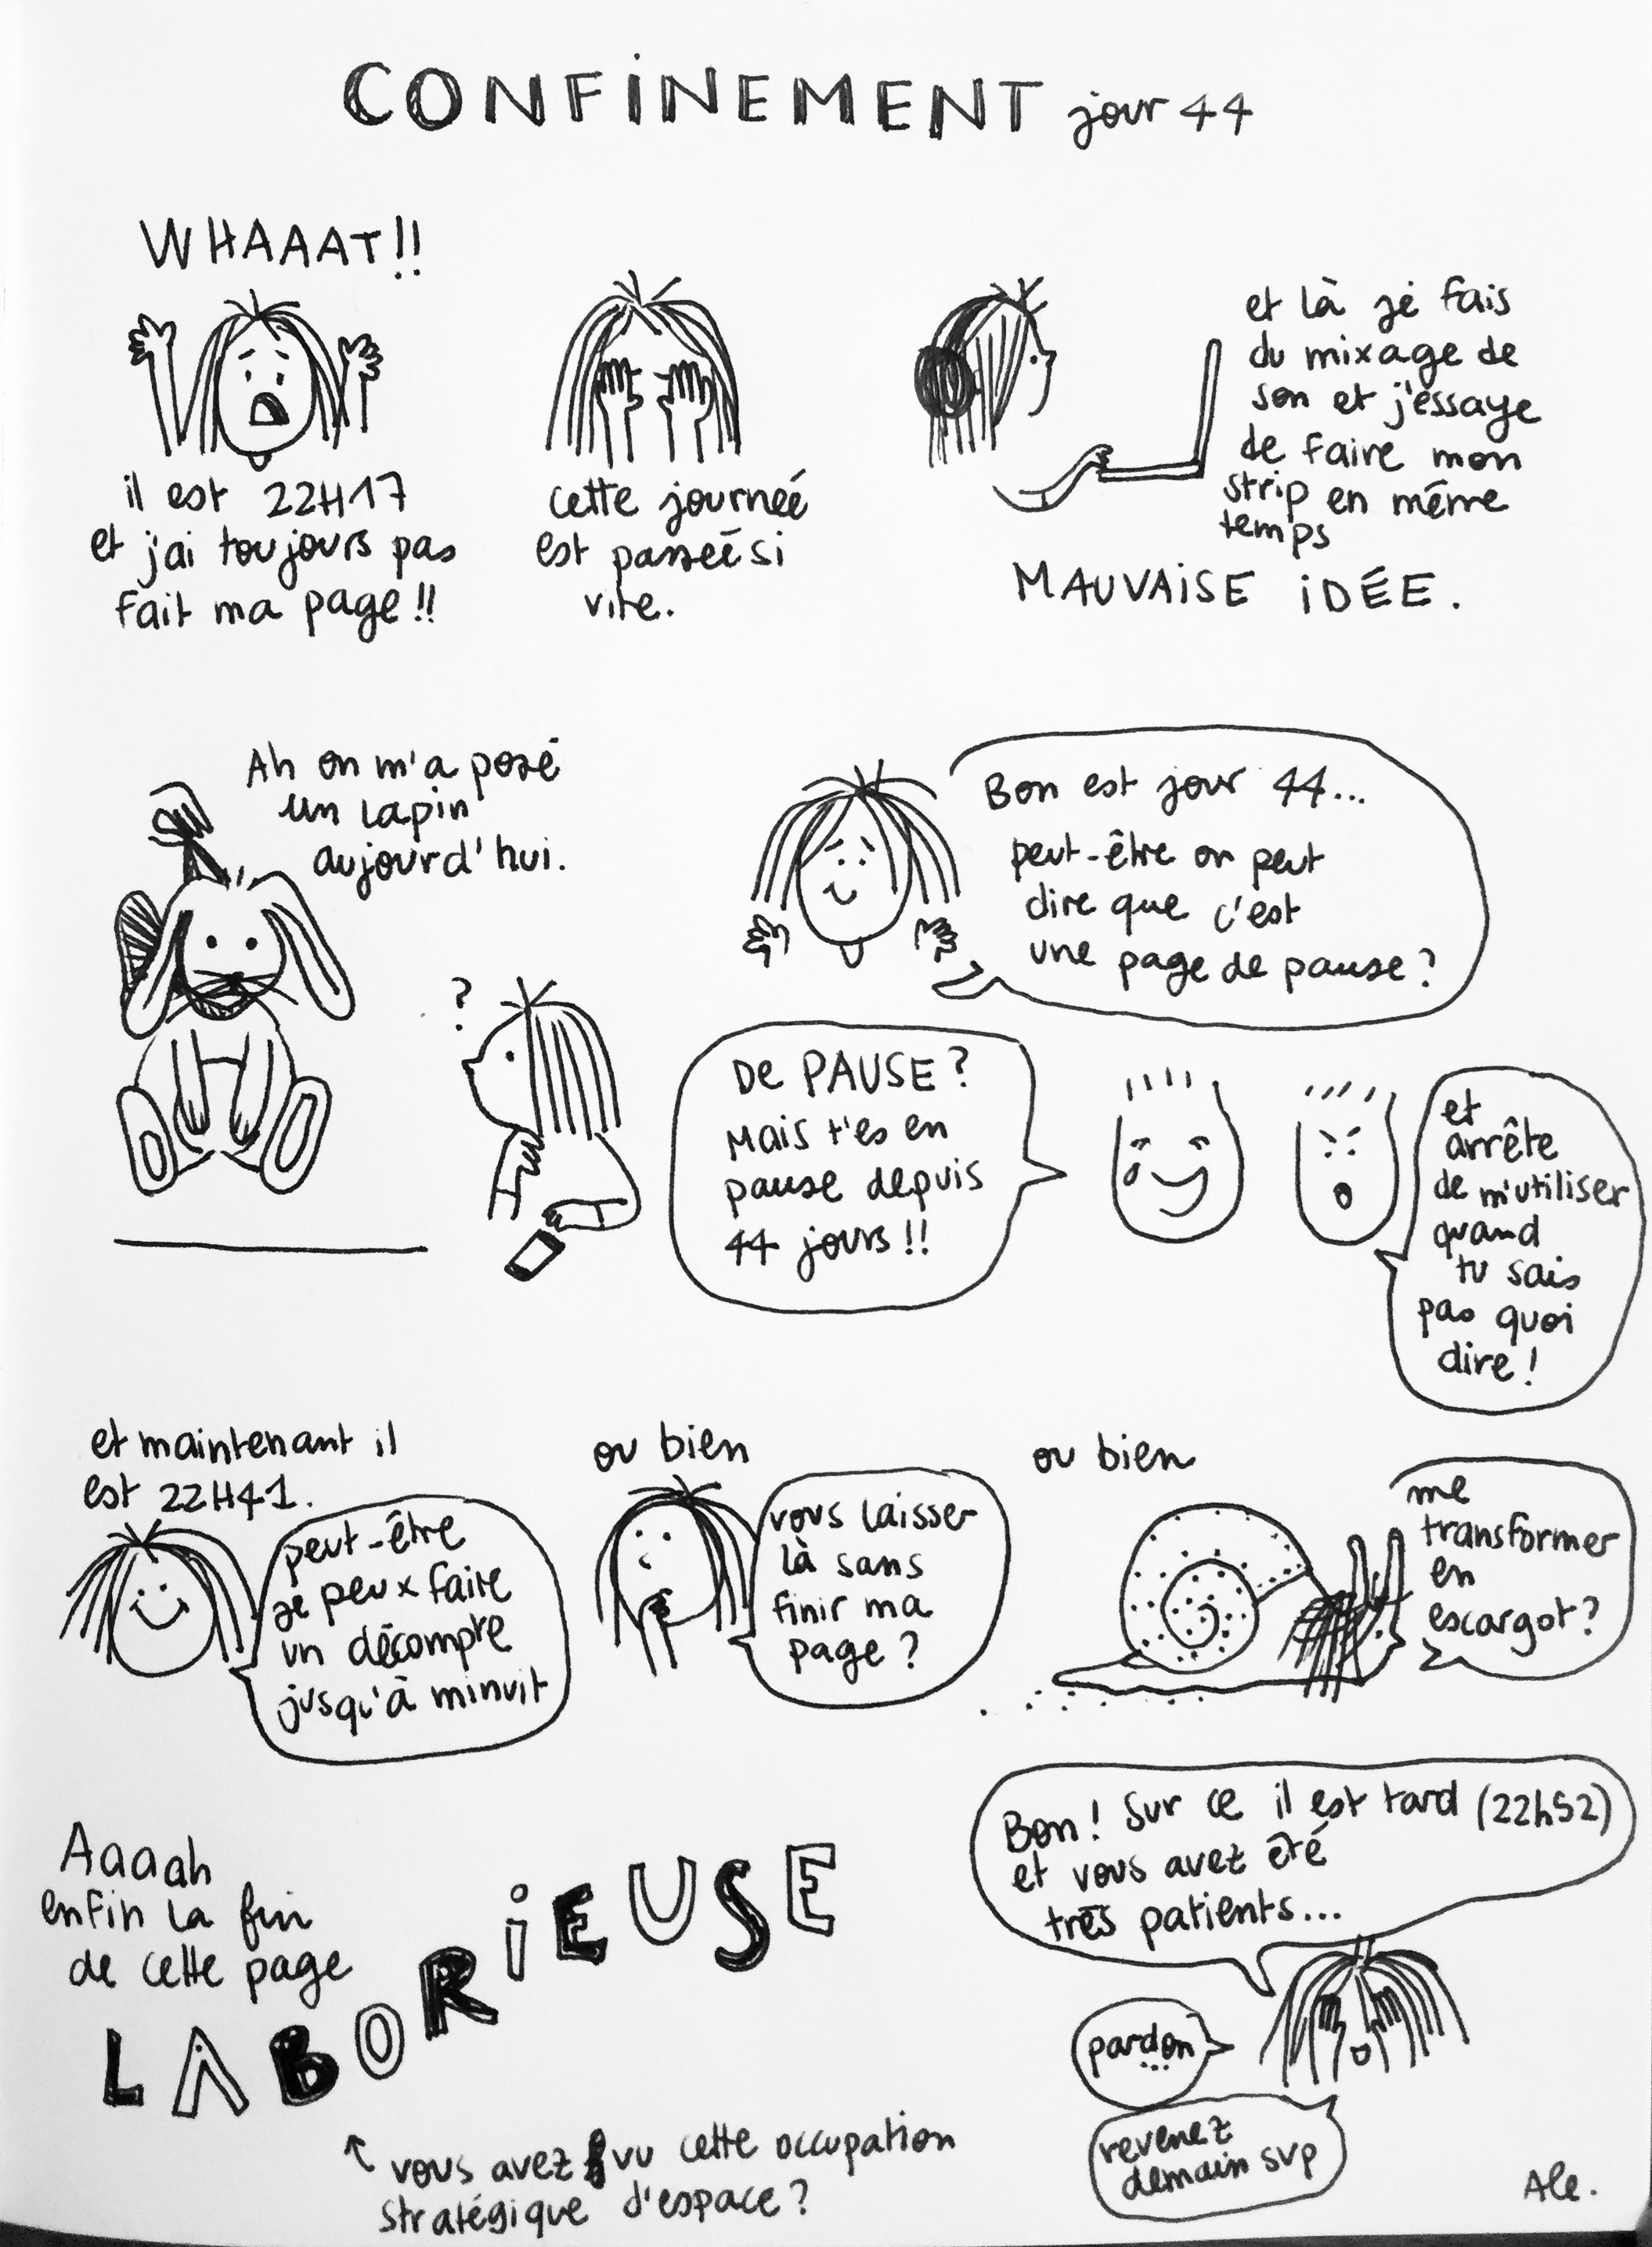 CONFINEMENT jour 44
WHAAAT!!
il est 22H17
et j'ai toujours pas
fait ma page!!
cette journeé
est passeé si
vite.
et là je fais
du mixage de
son et j'essaye
de faire mon
strip en même
temps
MAUVAISE IDÉE.
Ah on m'a posé
un lapin
aujourd'hui.
?
Bon est jour 44...
peut-être on peut
dire que c'est
une page de pause?
DE PAUSE?
Mais t'es en
pause depuis
44 jours!!
et
arrête
de m'utiliser
quand
tu sais
pas quoi
dire!
et maintenant il
est 22H41.
peut-être
je peux faire
un décompte
jusqu'à minuit
ou bien
vous laisser
là sans
finir ma
page?
ou bien
me
transformer
en
escargot?
Aaaah
enfin la fin
de cette page
LABORIEUSE
vous avez vu cette occupation
stratégique d'espace?
Bon! Sur ce il est tard (22h52)
et vous avez été
très patients...
pardon
...
revenez
demain svp
Ale.